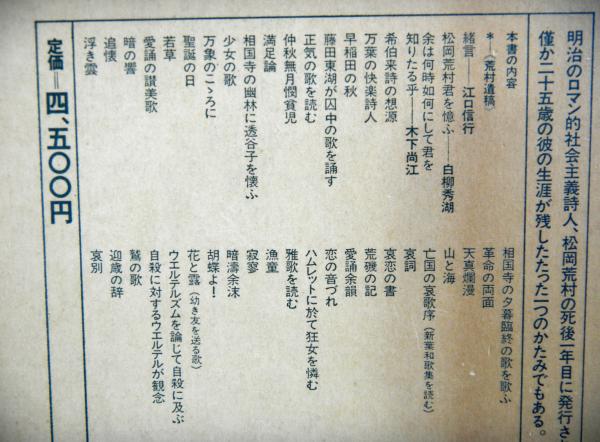 明治のロマン的社会主義詩人、松岡荒村の死後一年目に発行さ
僅か二十五歳の彼の生涯が残したたった一つのかたみでもある。
本書の内容
＊〈荒村遺稿〉
緒言――江口信行
松岡荒村君を憶ふ――白柳秀湖
余は何時如何にして君を
知りたる乎――木下尚江
希伯来詩の想源
万葉の快楽詩人
早稲田の秋
藤田東湖が囚中の歌を誦す
正気の歌を読む
仲秋無月憫貧児
満足論
相国寺の幽林に透谷子を懐ふ
少女の歌
万象のこゝろに
聖誕の日
若草
愛誦の讃美歌
暗の響
追懐
浮き雲
相国寺の夕暮臨終の歌を歌ふ
革命の両面
天真爛漫
山と海
亡国の哀歌序（新葉和歌集を読む）
哀詞
哀恋の書
荒磯の記
愛誦余韻
恋の音づれ
ハムレットに於て狂女を憐む
雅歌を読む
漁童
寂寥
暗濤余沫
胡蝶よ！
花と露（幼き友を送る歌）
ウエルテルズムを論じて自殺に及ぶ
自殺に対するウエルテルが観念
鷲の歌
迎歳の辞
哀別
定価＝四、五〇〇円